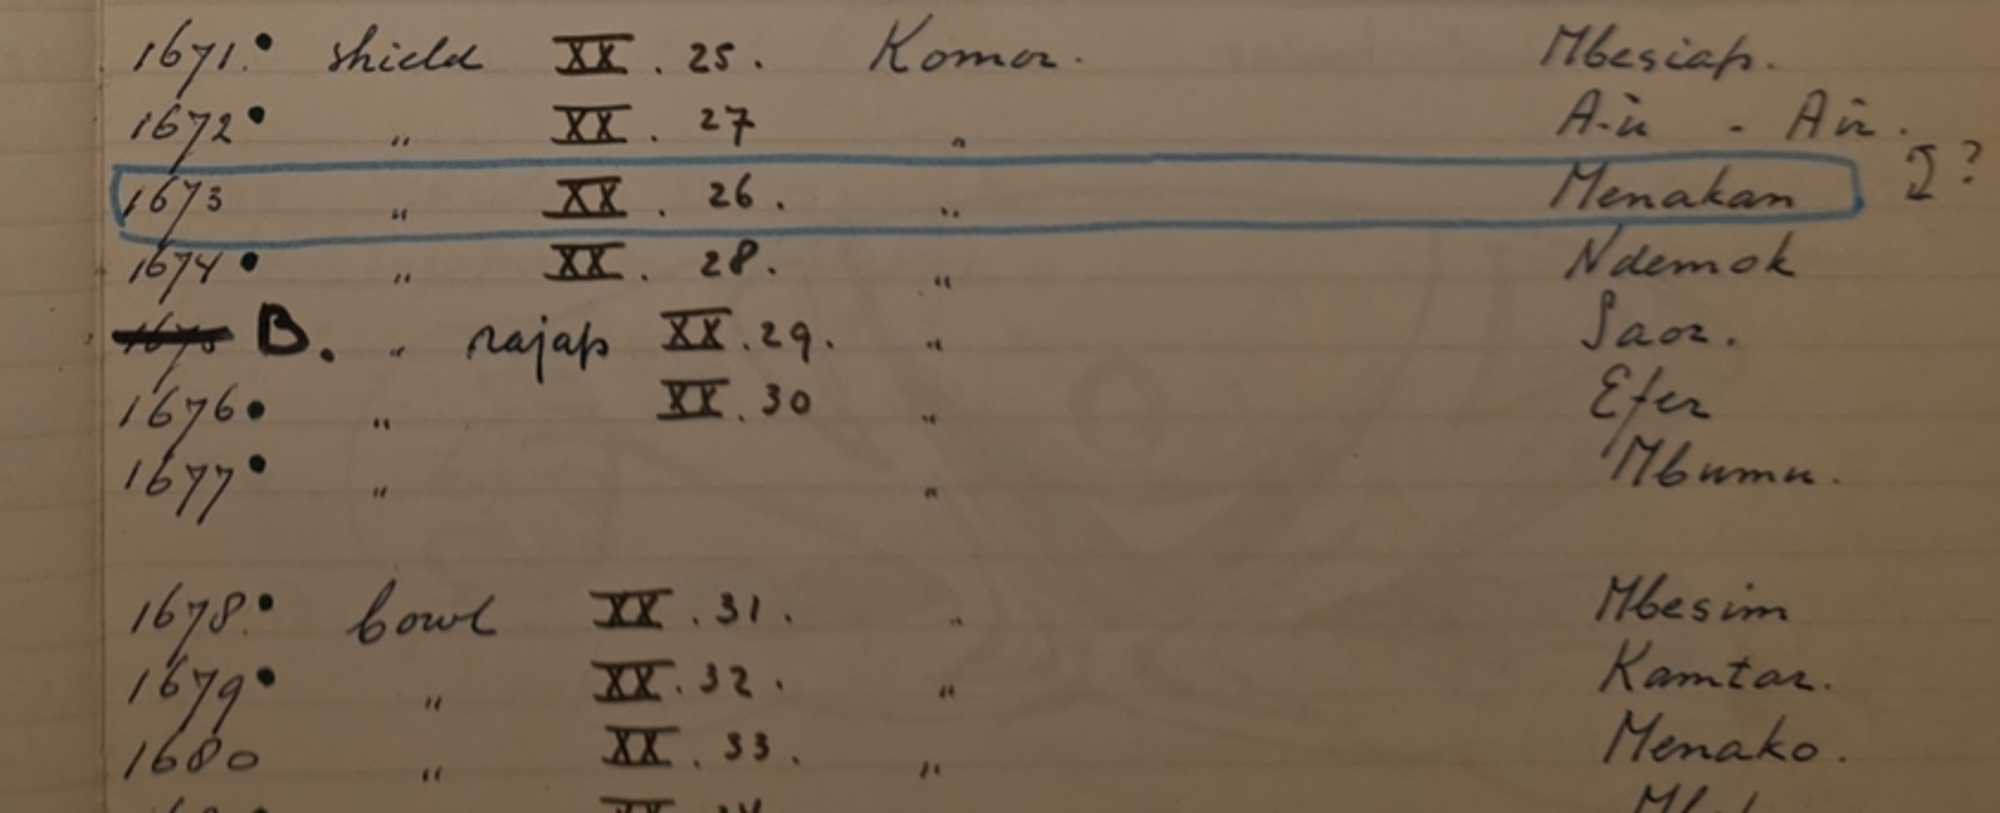 1671. • shield XX. 25. Komor. Mbesiap.
1672 • „ XX. 27 „ - Air.
1673 „ XX. 26. „ Menakan ?
1674 • „ XX. 28. „ Ndemok
1675 B. „ rajap XX. 29. „ Saor.
1676 • „ XX. 30 „ Efer
1677 • „ „ Mbumu.
1678. • bowl XX. 31. „ Mbesim
1679 • „ XX. 32. „ Kamtar.
1680 „ XX. 33. „ Menako.